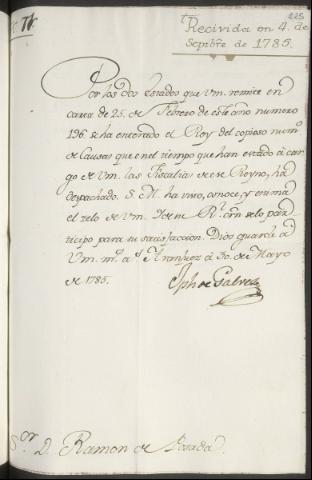 225
Recivida en 4. de
Septbre de 1785.
Por los dos Estados que Vm. remite en
carta de 25. de Febrero de este año numero
196 se ha enterado el Rey del copioso num.º
de Causas que en el tiempo que han estado à car
go de Vm. las Fiscalias de ese Reyno, ha
despachado. S. M. ha visto, conoce, y estima
el zelo de Vm. y de su R.l orn se lo par
ticipo para su satisfaccion. Dios guarde à
Vm. m.s a.s Aranjuez à 30. de Mayo
de 1785.
Jph de Galvez
S.or D. Ramon de Posada.